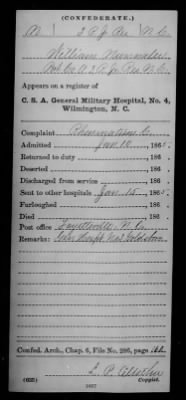 (CONFEDERATE.)
2 Jr Res N.C.
William
Appears on a register of
C. S. A. General Military Hospital, No. 4,
Wilmington, N. C.
Complaint Rheumatism C.
Admitted Jan 10, 1865.
Returned to duty, 186 .
Deserted, 186 .
Discharged from service, 186 .
Sent to other hospitals Jan 15, 1865.
Furloughed, 186 .
Died, 186 .
Post office Fayetteville N.C.
Remarks: Hosp No 3 Goldsboro
Confed. Arch., Chap. 6, File No. 286, page
(635)
Copyist.